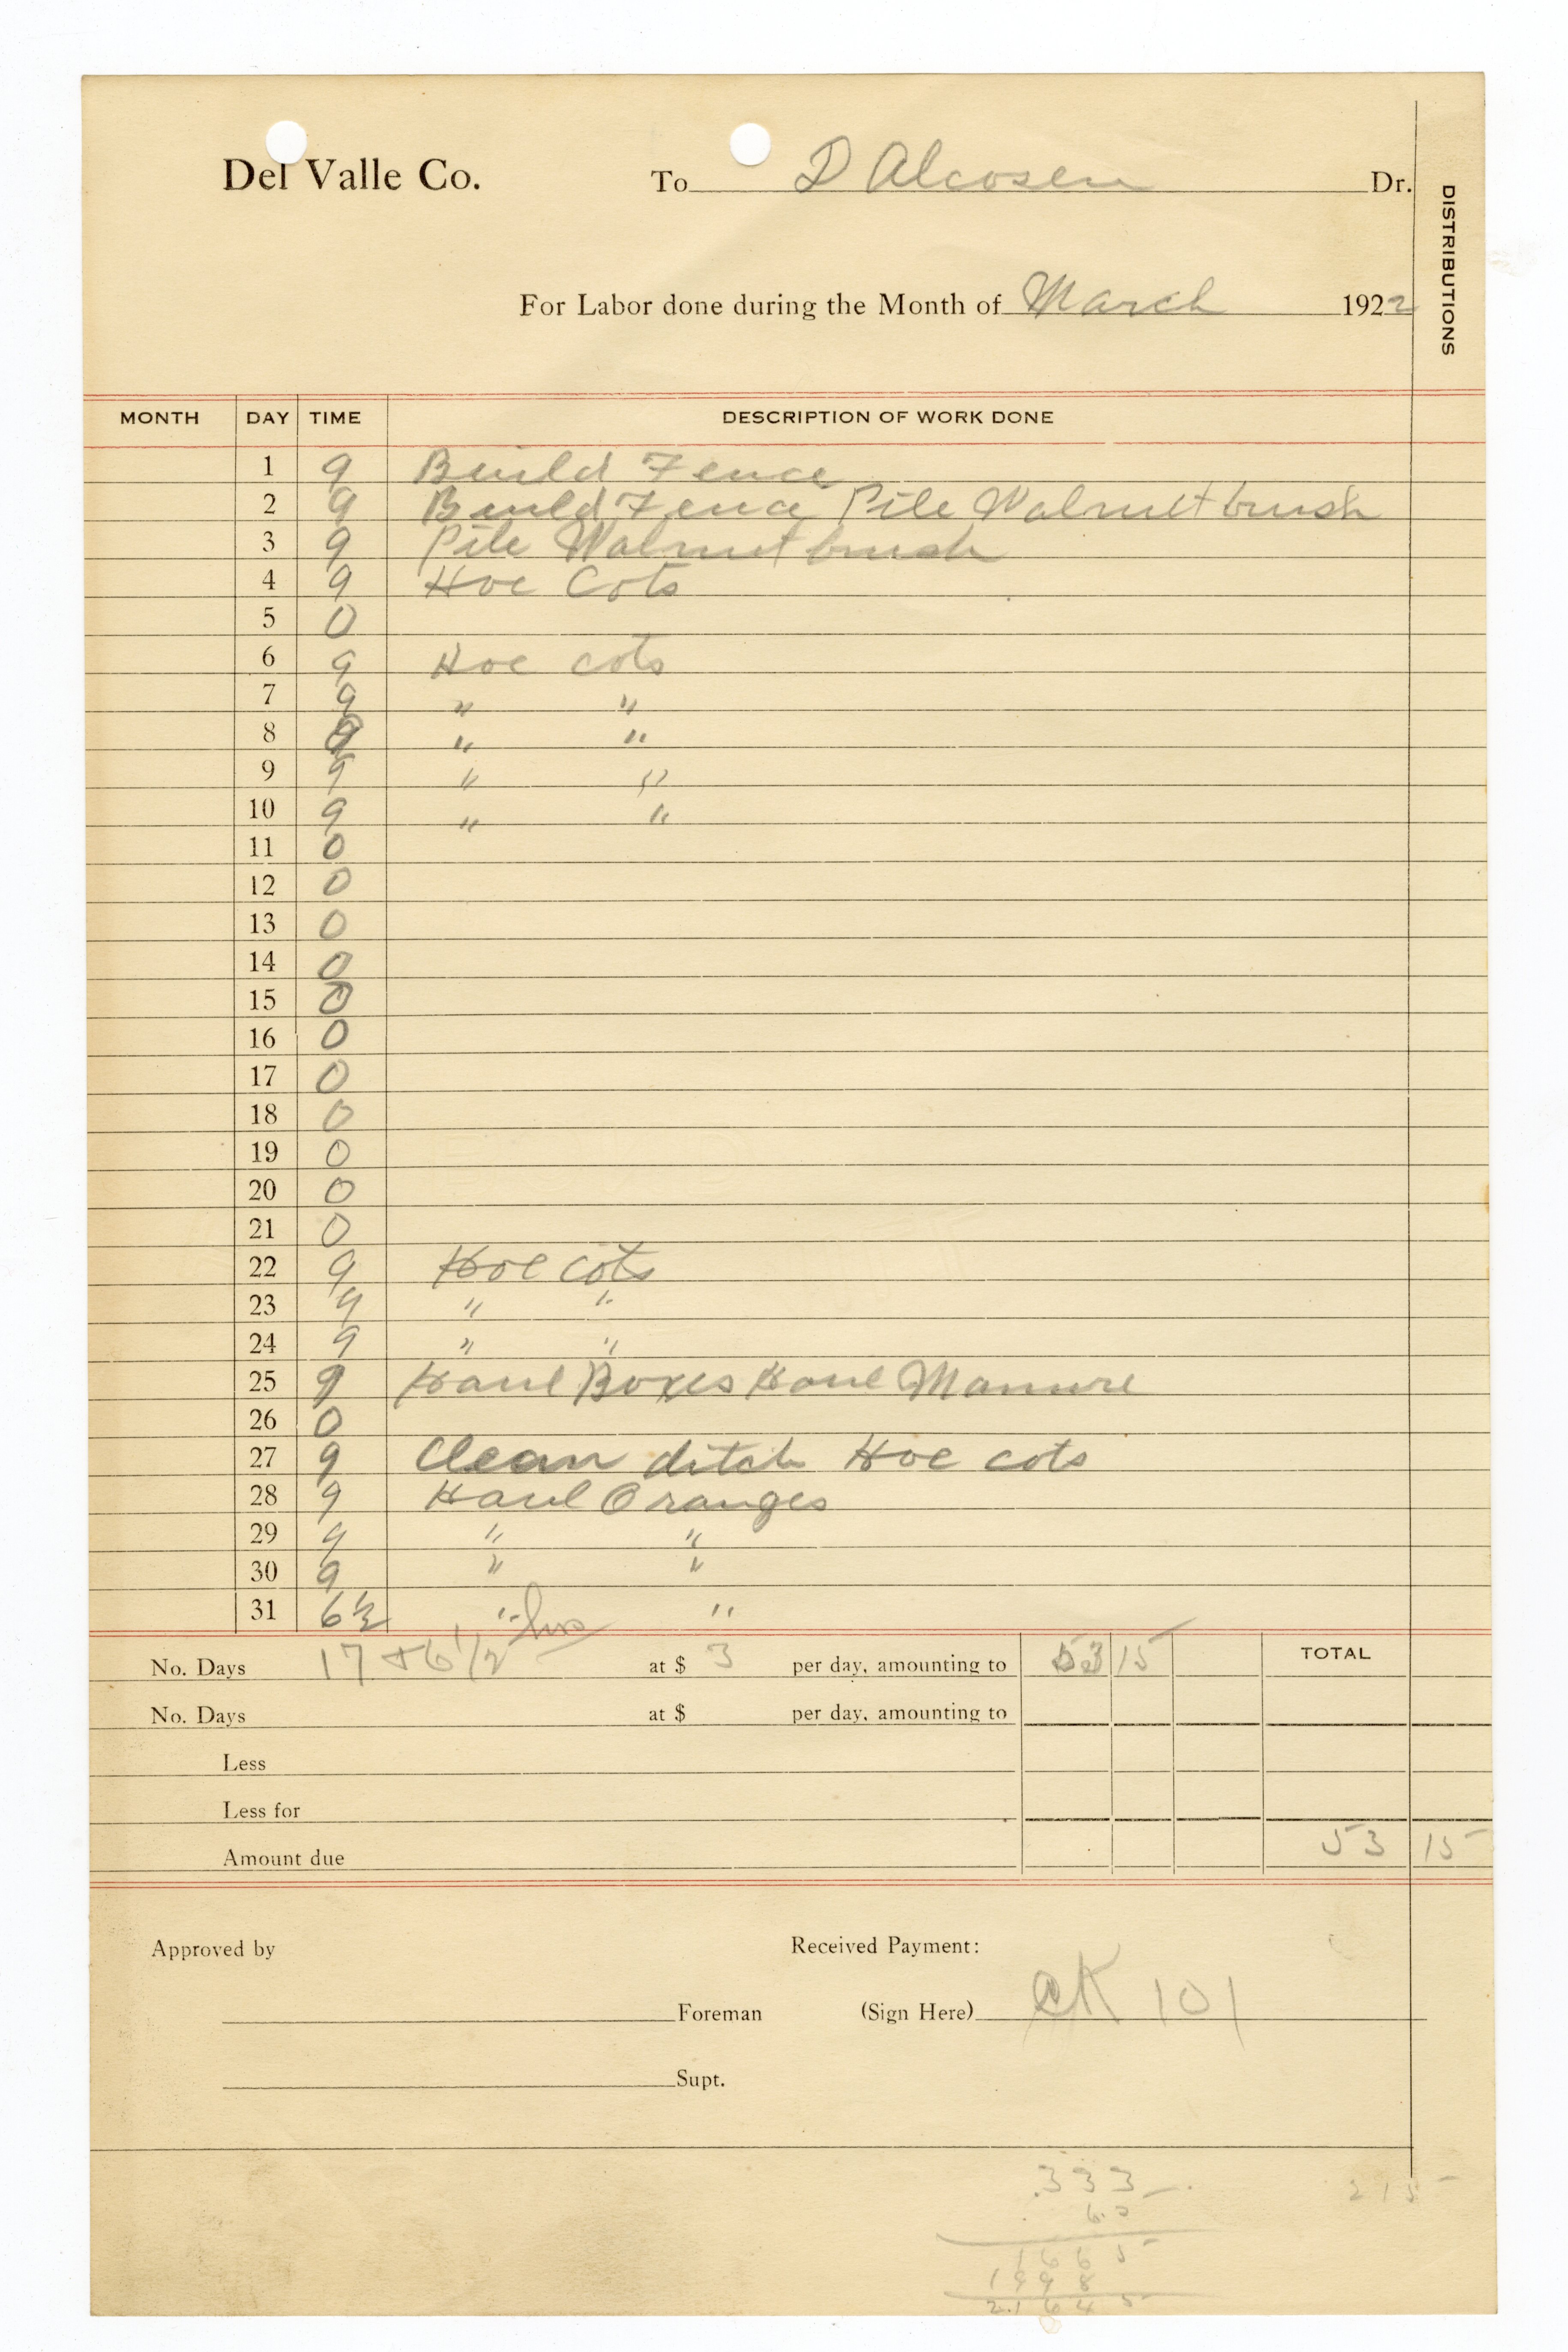 Del Valle Co. To D Alcosen Dr.
DISTRIBUTIONS
For Labor done during the Month of March 1922
MONTH DAY TIME DESCRIPTION OF WORK DONE
1 9 Build Fence
2 9 Build Fence Pile Walnut brush
3 9 Pile Walnut brush
4 9 Hoe Cots
5 0
6 9 Hoe cots
7 9 " "
8 9 " "
9 9 " "
10 9 " "
11 0
12 0
13 0
14 0
15 0
16 0
17 0
18 0
19 0
20 0
21 0
22 9 Hoe cots
23 9 " "
24 9 " "
25 9 Haul Boxes Haul Manure
26 0
27 9 Clean ditch Hoe cots
28 9 Haul Oranges
29 9 " "
30 9 " "
31 6½ " "
No. Days 17 & 6 1/2 hrs at $ 3 per day, amounting to 53 15 TOTAL
No. Days at $ per day, amounting to
Less
Less for
Amount due 53 15
Approved by Received Payment:
Foreman (Sign Here) CK 101
Supt.
.333 215
6.5
1665
1998
2.1645